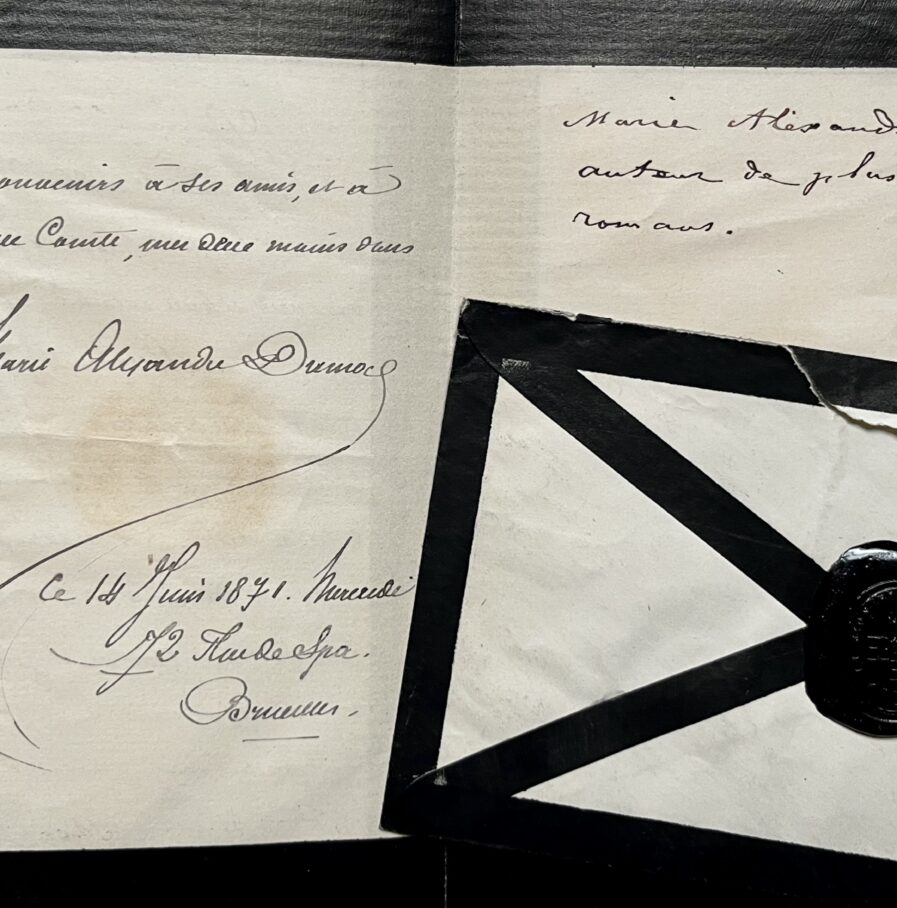 souvenirs à ses amis, et à
Comte, mes deux mains dans
Marie Alexandre Dumas
Ce 14 Juin 1871. Mercredi
72 Rue de Spa.
Bruxelles.
Marie Alexand
auteur de plus
romans.